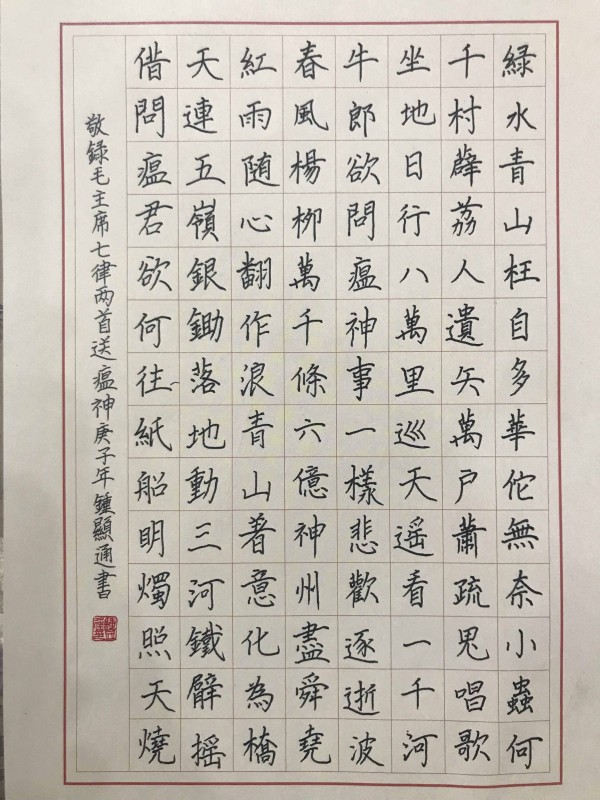 緑水青山枉自多華佗無奈小蟲何
千村薜荔人遺矢萬戶蕭疏鬼唱歌
坐地日行八萬里巡天遥看一千河
牛郎欲問瘟神事一樣悲歡逐逝波
春風楊柳萬千條六億神州盡舜堯
紅雨随心翻作浪青山著意化為橋
天連五嶺銀鋤落地動三河鐵臂摇
借問瘟君欲何往紙船明燭照天燒
敬録毛主席七律两首送瘟神庚子年鍾顯通書